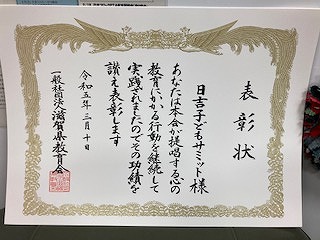 表彰状
日吉子どもサミット様
あなたは本会が提唱する心の
教育にかかる行動を継続して
実践されましたのでその功績を
讃え表彰します
令和五年三月十日
一般社団法人滋賀県教育会